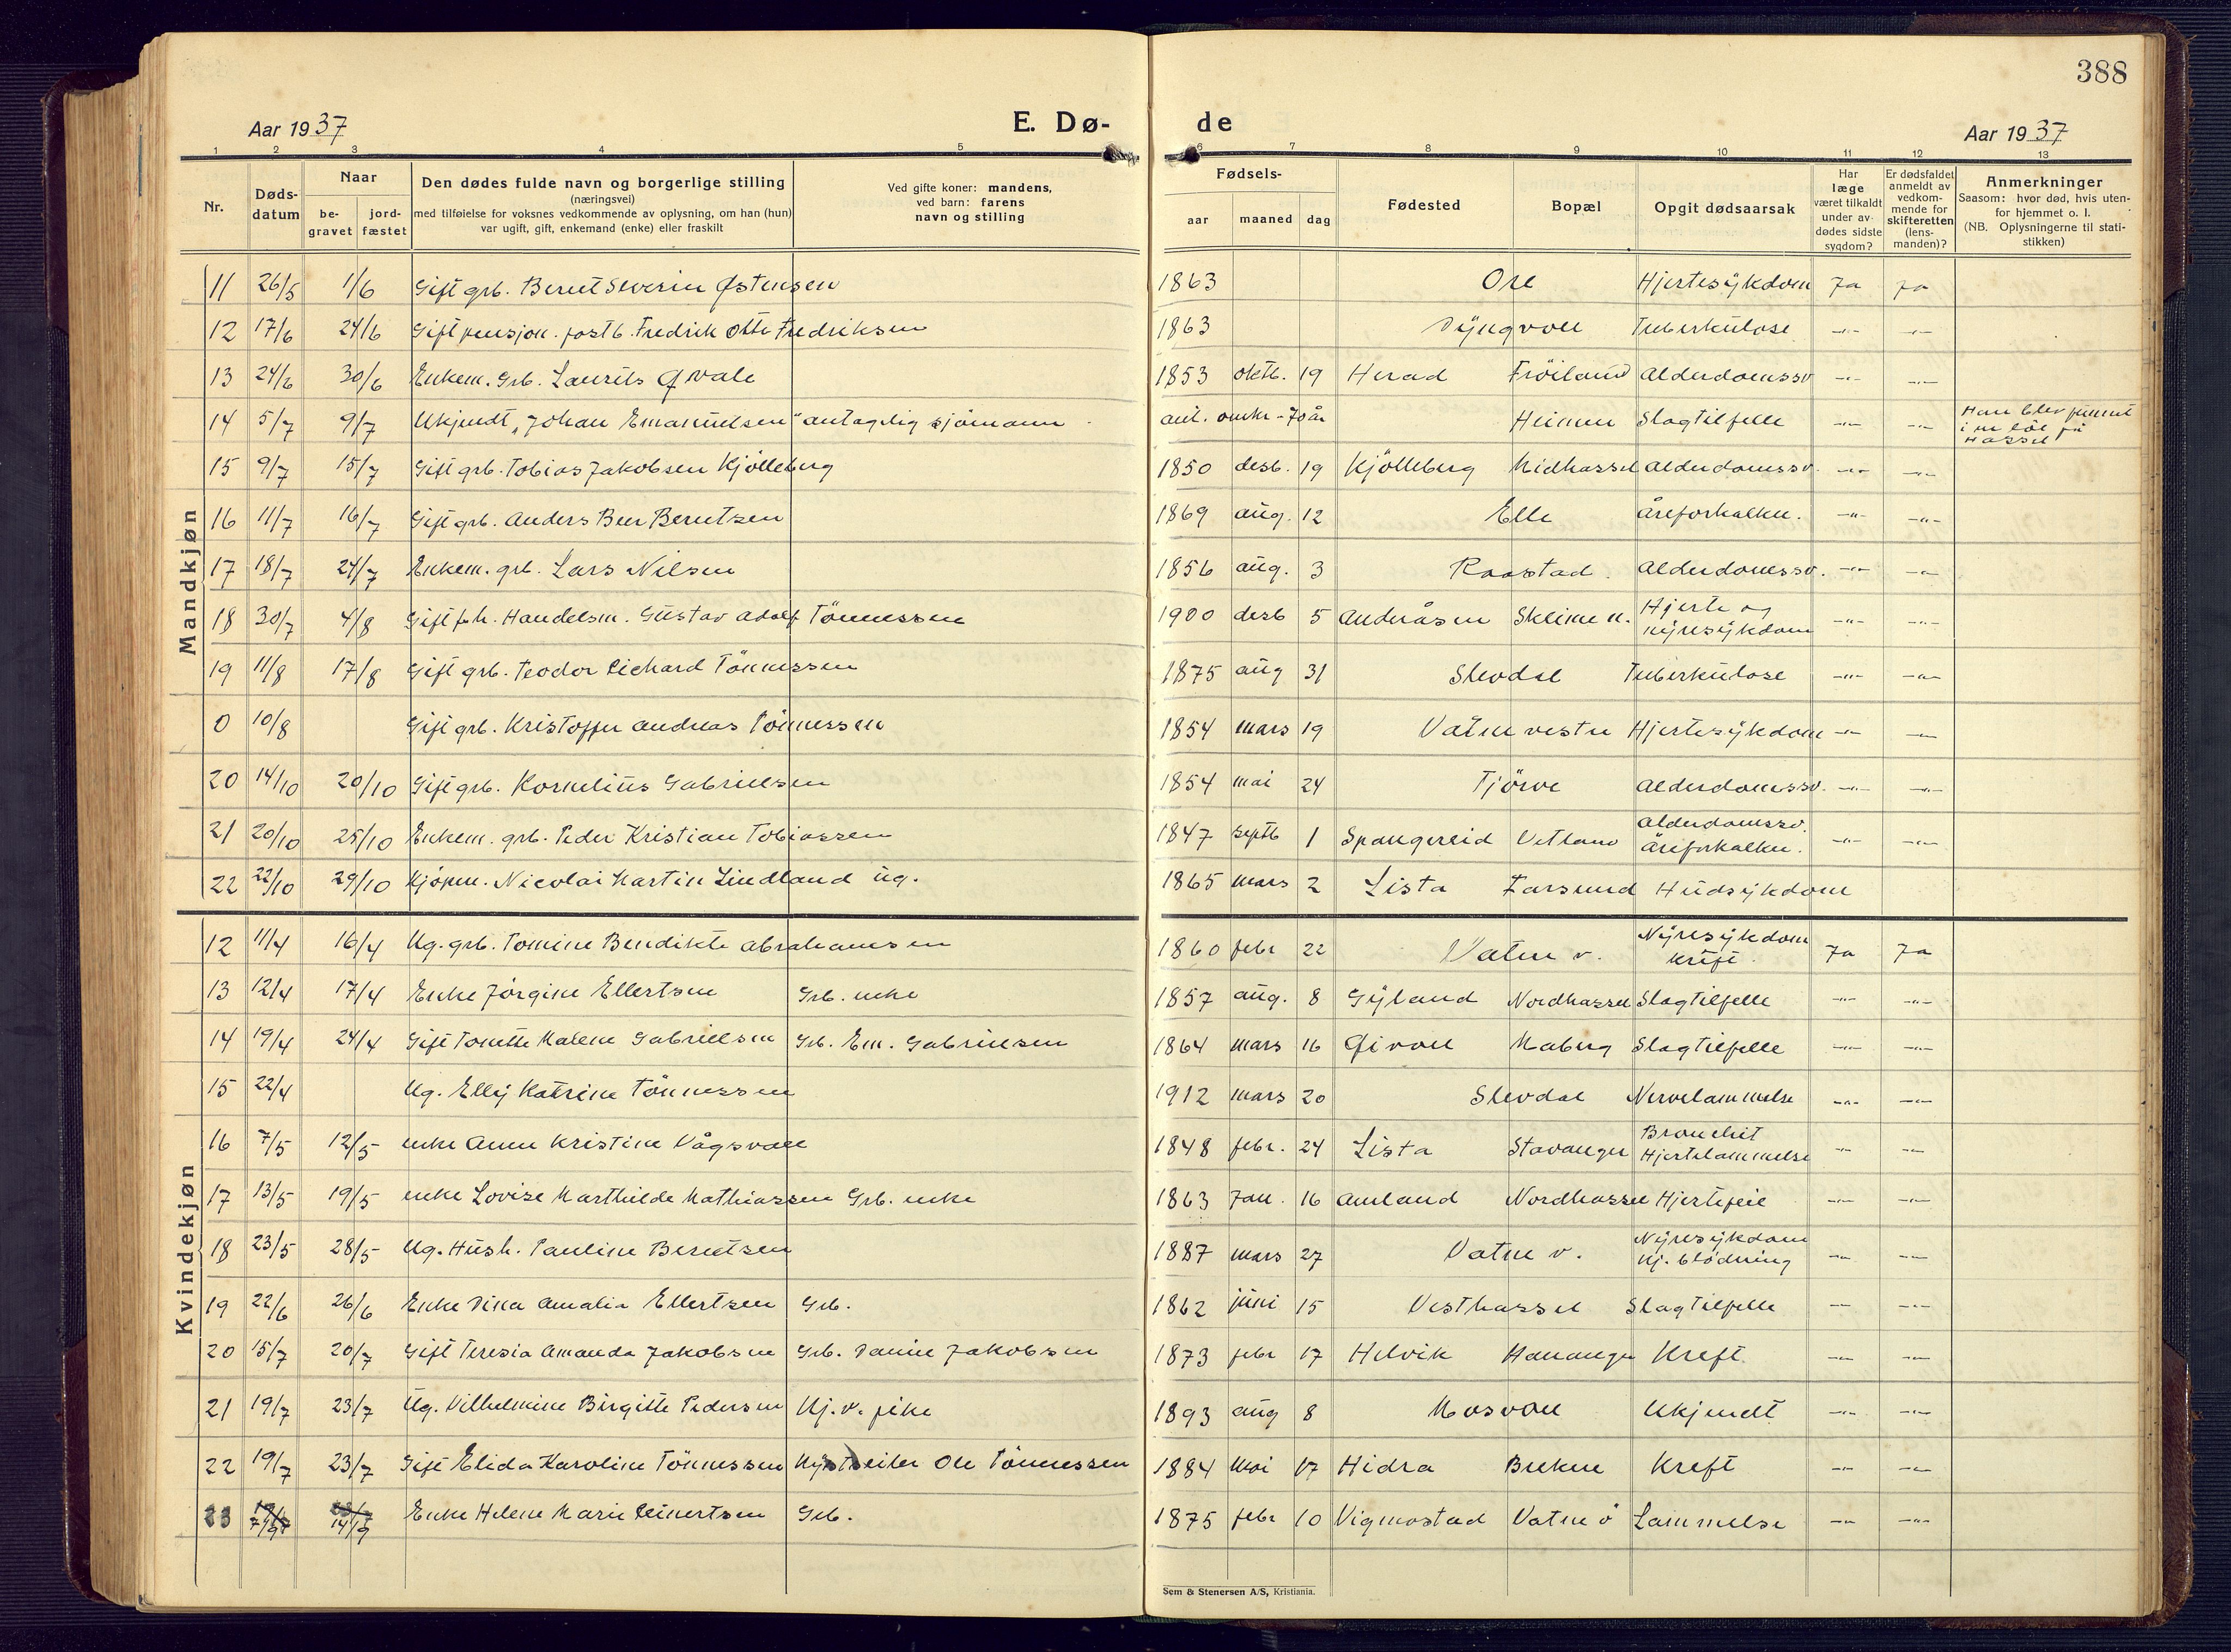 388
Aar 1937 E. Dø- de Aar 1937
1 2 3 4 5 6 7 8 9 10 11 12 13
Nr. Dødsdatum Naar begravet jordfæstet Den dødes fulde navn og borgerlige stilling (næringsvei) med tilføielse for voksnes vedkommende av oplysning, om han (hun) var ugift, gift, enkemand (enke) eller fraskilt Ved gifte koner: mandens, ved barn: farens navn og stilling Fødsels- aar maaned dag Fødested Bopæl Opgit dødsaarsak Har læge været tilkaldt under avdødes sidste sygdom? Er dødsfaldet anmeldt av vedkommende for skifteretten (lensmanden)? Anmerkninger Saasom: hvor død, hvis utenfor hjemmet o. l. (NB. Oplysningerne til statistikken)
Mandkjøn
11 26/5 1/6 Gift grb. Berut Severin Østensen 1863 Ore Hjertesykdom Ja Ja
12 17/6 24/6 Gift pensjon. postb. Fredrik Otto Fredriksen 1863 Dyngvoll Tuberkulose -"- -"-
13 24/6 30/6 Enkem. Grb. Laurits Qvale 1853 oktb. 19 Herad Frøiland Alderdomssv -"- -"-
14 5/7 9/7 Ukjendt "Johan Emanuelsen" antagelig sjømann ant. omkr - 70 år Heimen Slagtilfelle -"- -"- Han blev funnet i en løe på Hassel
15 9/7 15/7 Gift grb. Tobias Jakobsen Kjølleberg 1850 desb. 19 Kjølleberg Midhassel Alderdomssv. -"- -"-
16 11/7 16/7 Gift grb. Anders Beer Berntsen 1869 aug. 12 Elle Åreforkalkn. -"- -"-
17 18/7 24/7 Enkem. grb. Lars Nilsen 1856 aug. 3 Raastad. Alderdomssv. -"- -"-
18 30/7 4/8 Gift fh. Handelsm. Gustav Adolf Tönnessen 1900 desb 5 Anderåsen Skeime n. Hjerte og nyresykdom -"- -"-
19 11/8 17/8 Gift grb. Teodor Richard Tönnessen 1875 aug 31 Slevdal Tuberkulose -"- -"-
0 10/8 Gift grb. Kristoffer Andreas Tönnessen 1854 mars 19 Vatne vestre Hjertesykdom -"- -"-
20 14/10 20/10 Gift grb. Kornelius Gabrielsen 1854 mai 24 Tjörve Alderdomssv. -"- -"-
21 20/10 25/10 Enkem. grb. Peder Kristian Tobiassen 1847 septb 1 Spangereid Vetland Alderdomssv. åreforkalkn. -"- -"-
22 22/10 29/10 Kjöpm. Nicolai Martin Lindland ug. 1865 mars 2 Lista Farsund Hudsykdom
Kvindekjøn
12 11/4 16/4 Ug. grb. Tomine Bendikte Abrahamsen 1860 febr 22 Vatne v. Nyresykdom kreft. Ja Ja
13 12/4 17/4 Enke Jörgine Ellertsen Grb. enke 1857 aug. 8 Gyland Nordhassel Slagtilfelle -"- -"-
14 19/4 24/4 Gift Tomette Malene Gabrielsen Grb. Em. Gabrielsen 1864 mars 16 Givoll Maberg Slagtilfelle -"- -"-
15 22/4 Ug. Elly Katrine Tönnessen 1912 mars 20 Slevdal Nervelammelse -"- -"-
16 7/5 12/5 enke Anne Kristine Vågsvoll 1848 febr. 24 Lista Stavanger Bronchit Hjertelammelse -"- -"-
17 13/5 19/5 enke Lovise Marthilde Mathiassen Grb. enke 1863 Jan. 16 Amland Nordhassel Hjertefeil -"- -"-
18 23/5 28/5 Ug. Hush. Pauline Berntsen 1887 mars 27 Vatne v. Nyresykdom Hj. blödning -"- -"-
19 22/6 26/6 Enke Dina Amalia Ellertsen Grb. 1862 juni 15 Vesthassel Slagtilfelle -"- -"-
20 15/7 20/7 Gift Teresia Amanda Jakobsen Grb. Danie Jakobsen 1873 febr 17 Helvik Hananger Kreft. -"- -"-
21 19/7 23/7 Ug. Vilhelmine Birgitte Pedersen Hj. v. pike 1893 aug 8 Mosvoll Ukjendt -"- -"-
22 19/7 23/7 Gift Elida Karoline Tönnessen Ole Tönnessen 1884 Mai 17 Hidra Brekne Kreft -"- -"-
23 7/9 14/9 Enke Helene Marie Reinertsen Grb. 1875 febr 10 Vigmostad Vatne ö Lammelse -"- -"-
Sem & Stenersen A/S, Kristiania.